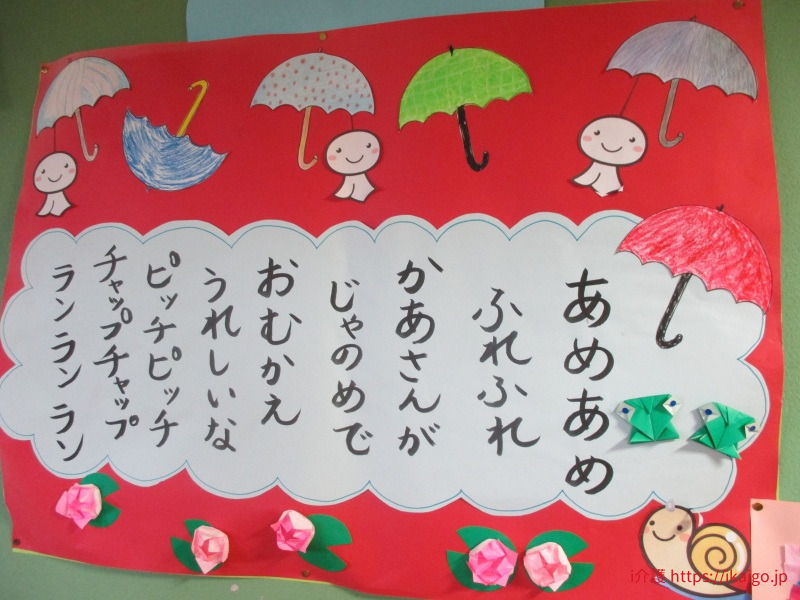 あめあめ
ふれふれ
かあさんが
じゃのめで
おむかえ
うれしいな
ピッチピッチ
チャップチャップ
ランランラン
i介護 https://ikaigo.jp